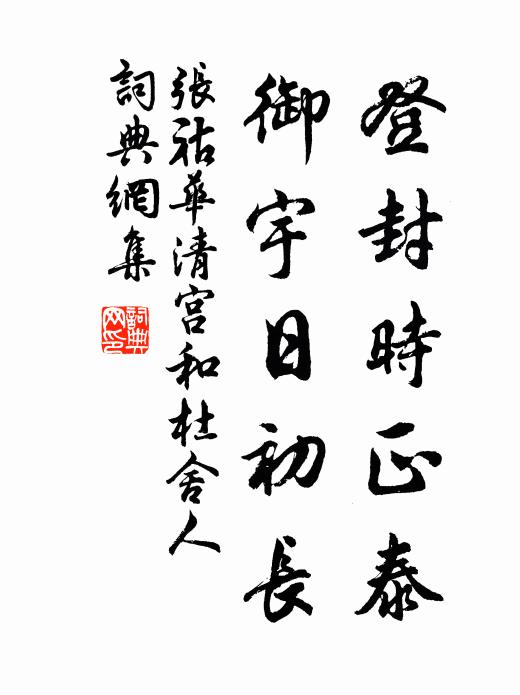 登封時正泰
御宇日初長
張祜華清宮和杜舍人
詞典網集
詞典网印